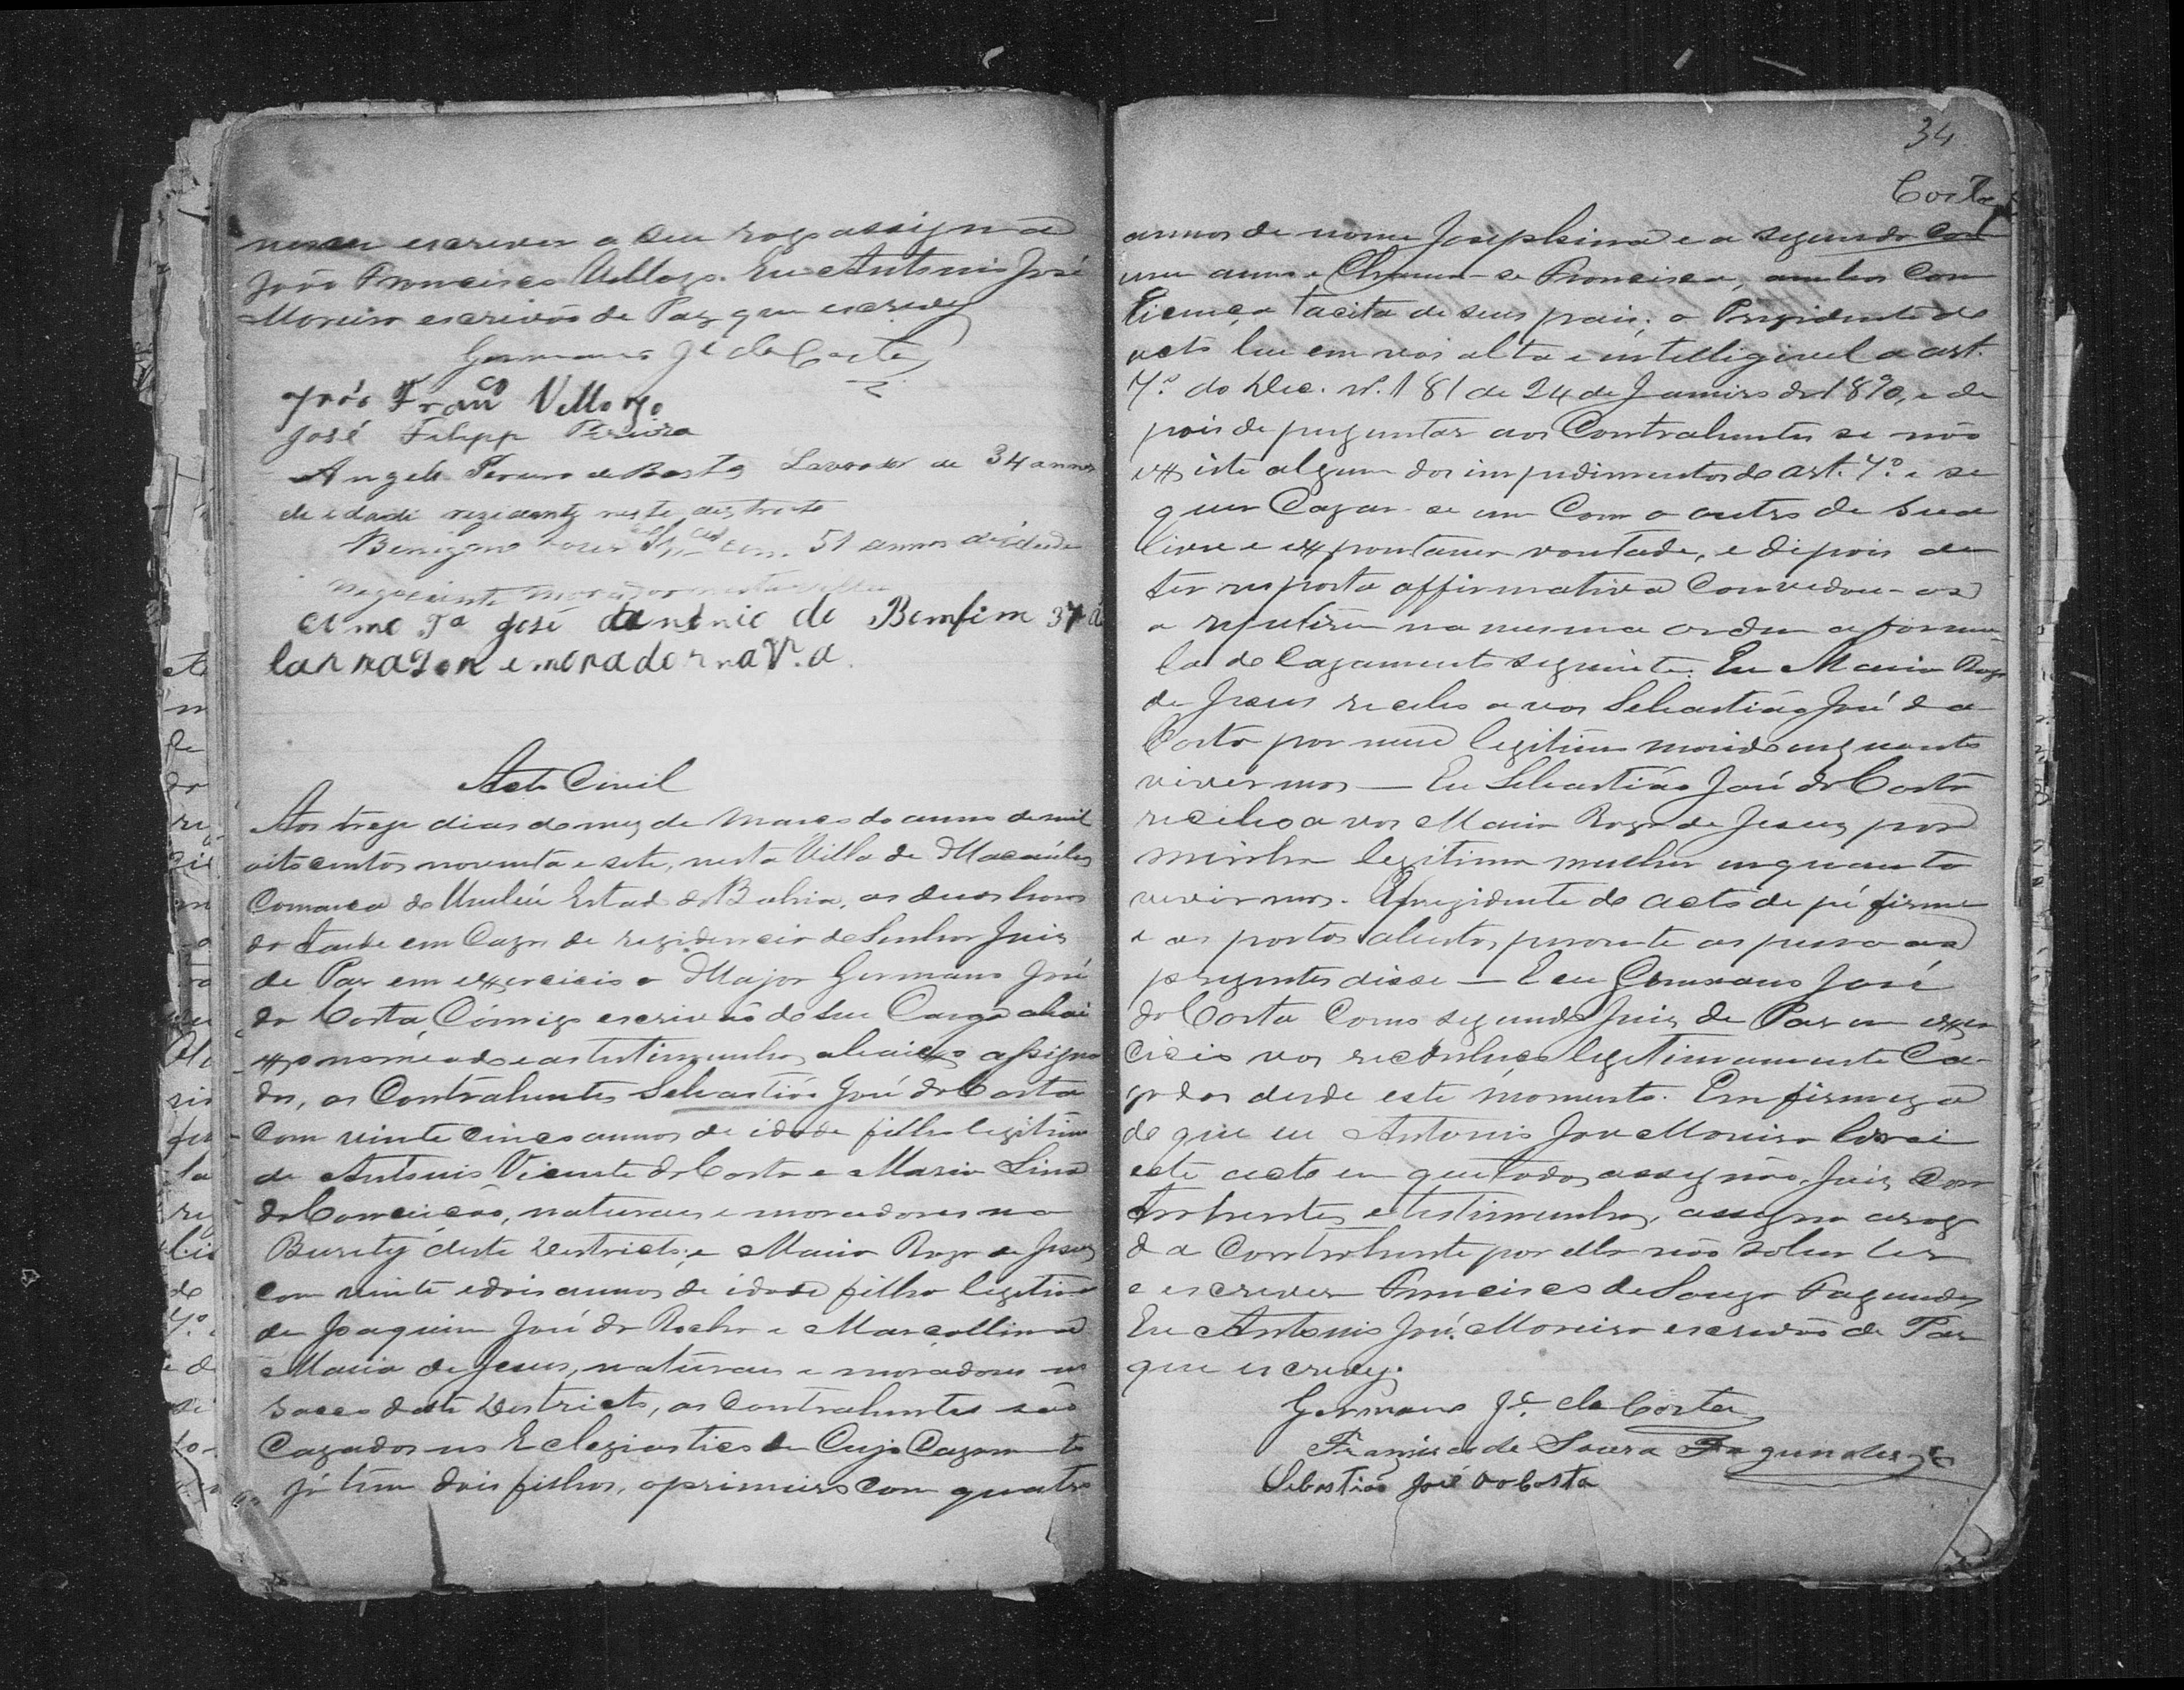 escrever a seu rogo assigna
João Francisco Vellozo. Eu Antonio José
Moreira escrivão de Paz que escrevy
Germano Jé da Costa
João Franco Vellozo
José Felipp Pereira
Angelo Lavrador de 34 annos
de idade rezidente neste destrito
Benigno 51 annos de idade
negociante morador nesta villa
como Ta José Antonio do Bomfim 37 a
larrador e morador na Va.
Acto Civil
Aos treze dias do mez de Março do anno de mil
oitocentos noventa e sete, nesta Villa de Macaúbas
Comarca do Urubú Estado da Bahia, as duas horas
da tarde em Caza de rezidencia do Senhor Juiz
de Paz em exercicio o Major Germano José
da Costa, Cómigo escrivão do seu Cargo abai
xo nomeado e as testimunhas abaixo assigna
dos, os Contrahentes Sebastião José da Costa
com vinte cinco annos de idade filho legitimo
de Antonio Vicente da Costa e Maria Lina
da Conceição, naturaes e moradores no
Burity deste Destricto, e Maria Roza de Jesus
com vinte e dois annos de idade filha legitima
de Joaquim José da Rocha e Marcollina
Maria de Jesus, naturaes e moradores no
Sacco deste Destricto, os Contrahentes são
Cazados no Ecleziastico de Cujo Cazamento
já tem dois filhos, o primeiro com quatro
34
Costa
annos de nome Josephina e a segundo com
um anno e Chama-se Francisca, ambos com
licença tacita de seus pais; o Prezidente do
acto leu em vos alta e intelligivel o art.
7º do Dec. Nº. 181 de 24 de Janeiro de 1890, e de
pois de perguntar aos Contrahentes se não
existe algum dos impedimentos do art. 7º e se
quer Cazar-se um Com o outro de sua
livre e expontanea vontade, e depois de
ter resposta affirmativa Convedou-os
a repetirem na mesma ordem a formu-
la do Cazamento seguinte: Eu Maria Roza
de Jesus recebo a vos Sebastião José da
Costa por meu legitimo marido enquanto
vivermos — Eu Sebastião José da Costa
recebo a vos Maria Roza de Jesus por
minha legitima mulher enquanto
vivermos. O prezidente do acto de pé firme
e as portas abertas, perante as pessoas
prezentes disse — E eu Germano José
da Costa Como segundo Juiz de Paz em exer
cicio vos reconheço legitimamente Ca-
zados desde este momento. Em firmeza
de que eu Antonio José Moreira lavrei
este acto em que todos assignão, Juiz, Con
trahentes e testimunhas, assigna arogo
da Contrahente por ella não saber ler
e escrever Francisco de Souza Fagundes
Eu Antonio José Moreira escrivão de Paz
que escrevy.
Germano Jé. da Costa
Francisco de Souza Fagundes
Sebastião José da Costa